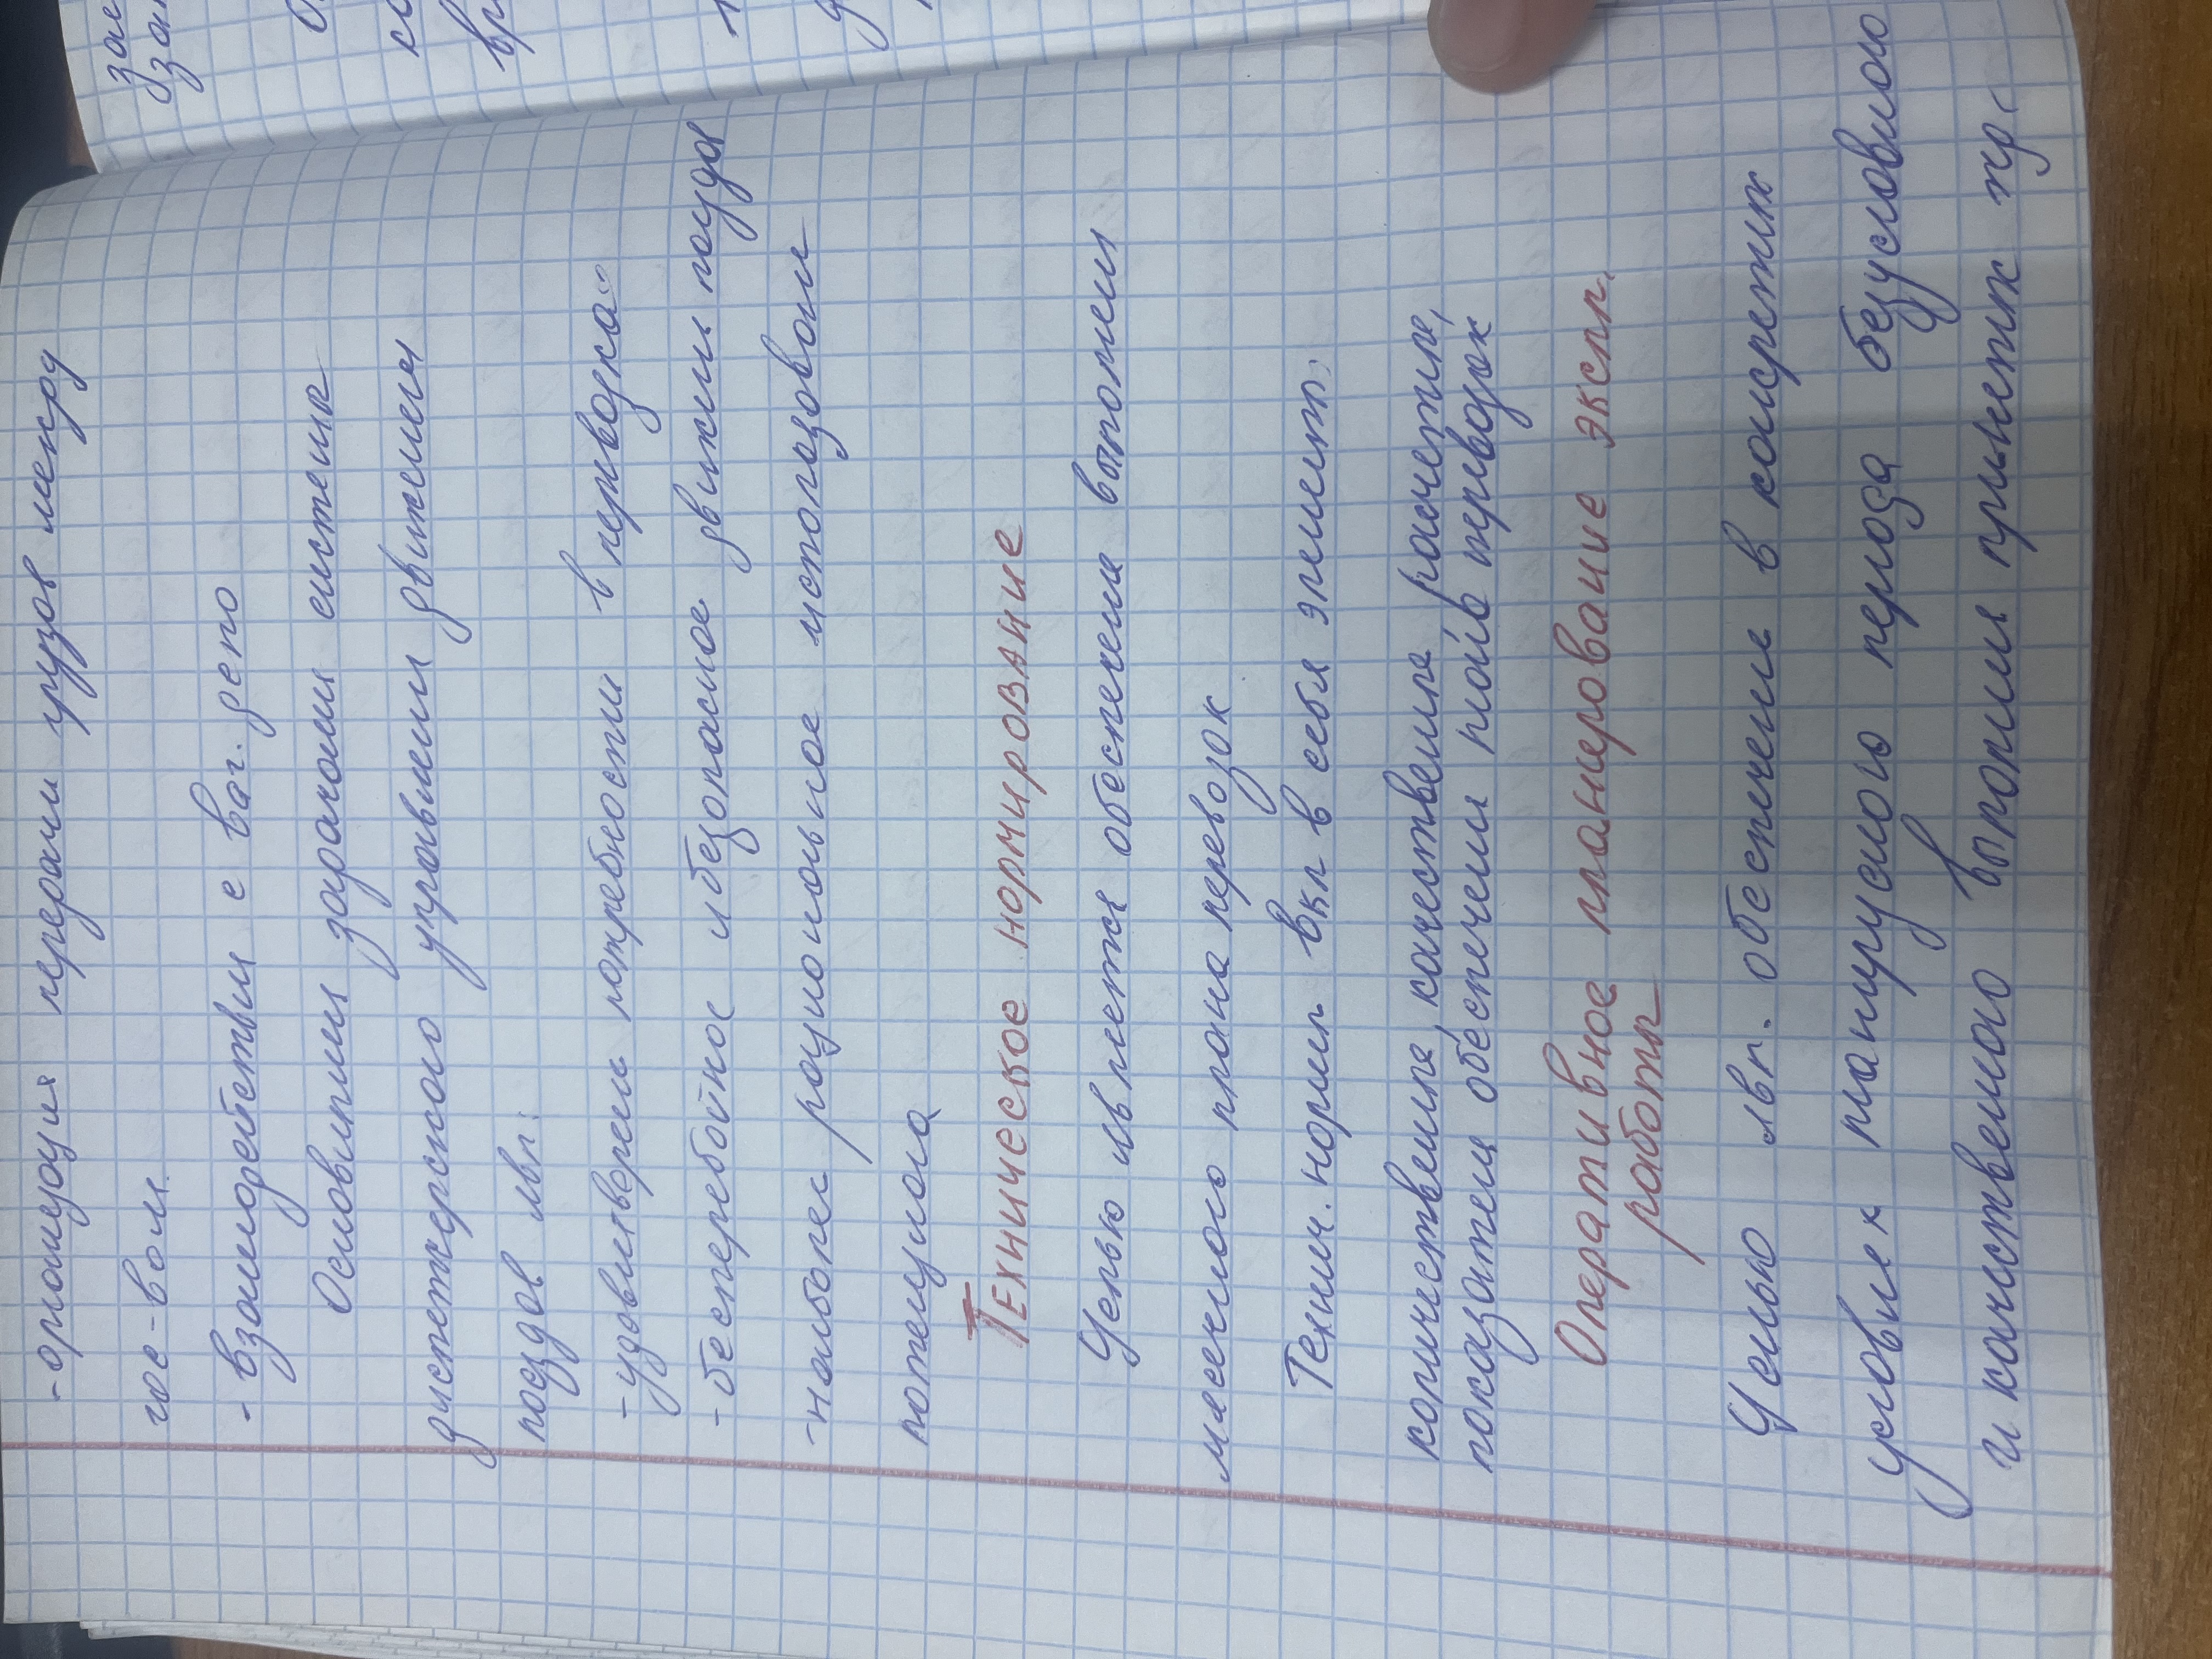 -организация передачи грузов между
гос-вами.
-взаимодействии с ваг. депо
Основными задачами систеиы
диспетчерского управлении движением
поездов явл:
-удовлетворени потребностии в перевозка
-бесперебойное и безопасное движени поезда
-наиболее рациональное использовани
потенциала
Техническое нормирование
Целью является обеспечение выполнени
месечного плана перевозок
Технич. нормы вкл в себя элемент:
количественные, качественные, расчетные,
показатели обеспечени перевозок
Оперативное планирование экспл.
работы
Целью явл. обеспечени в конкретных
условиях планируемого периода безусловного
и качественного выполни